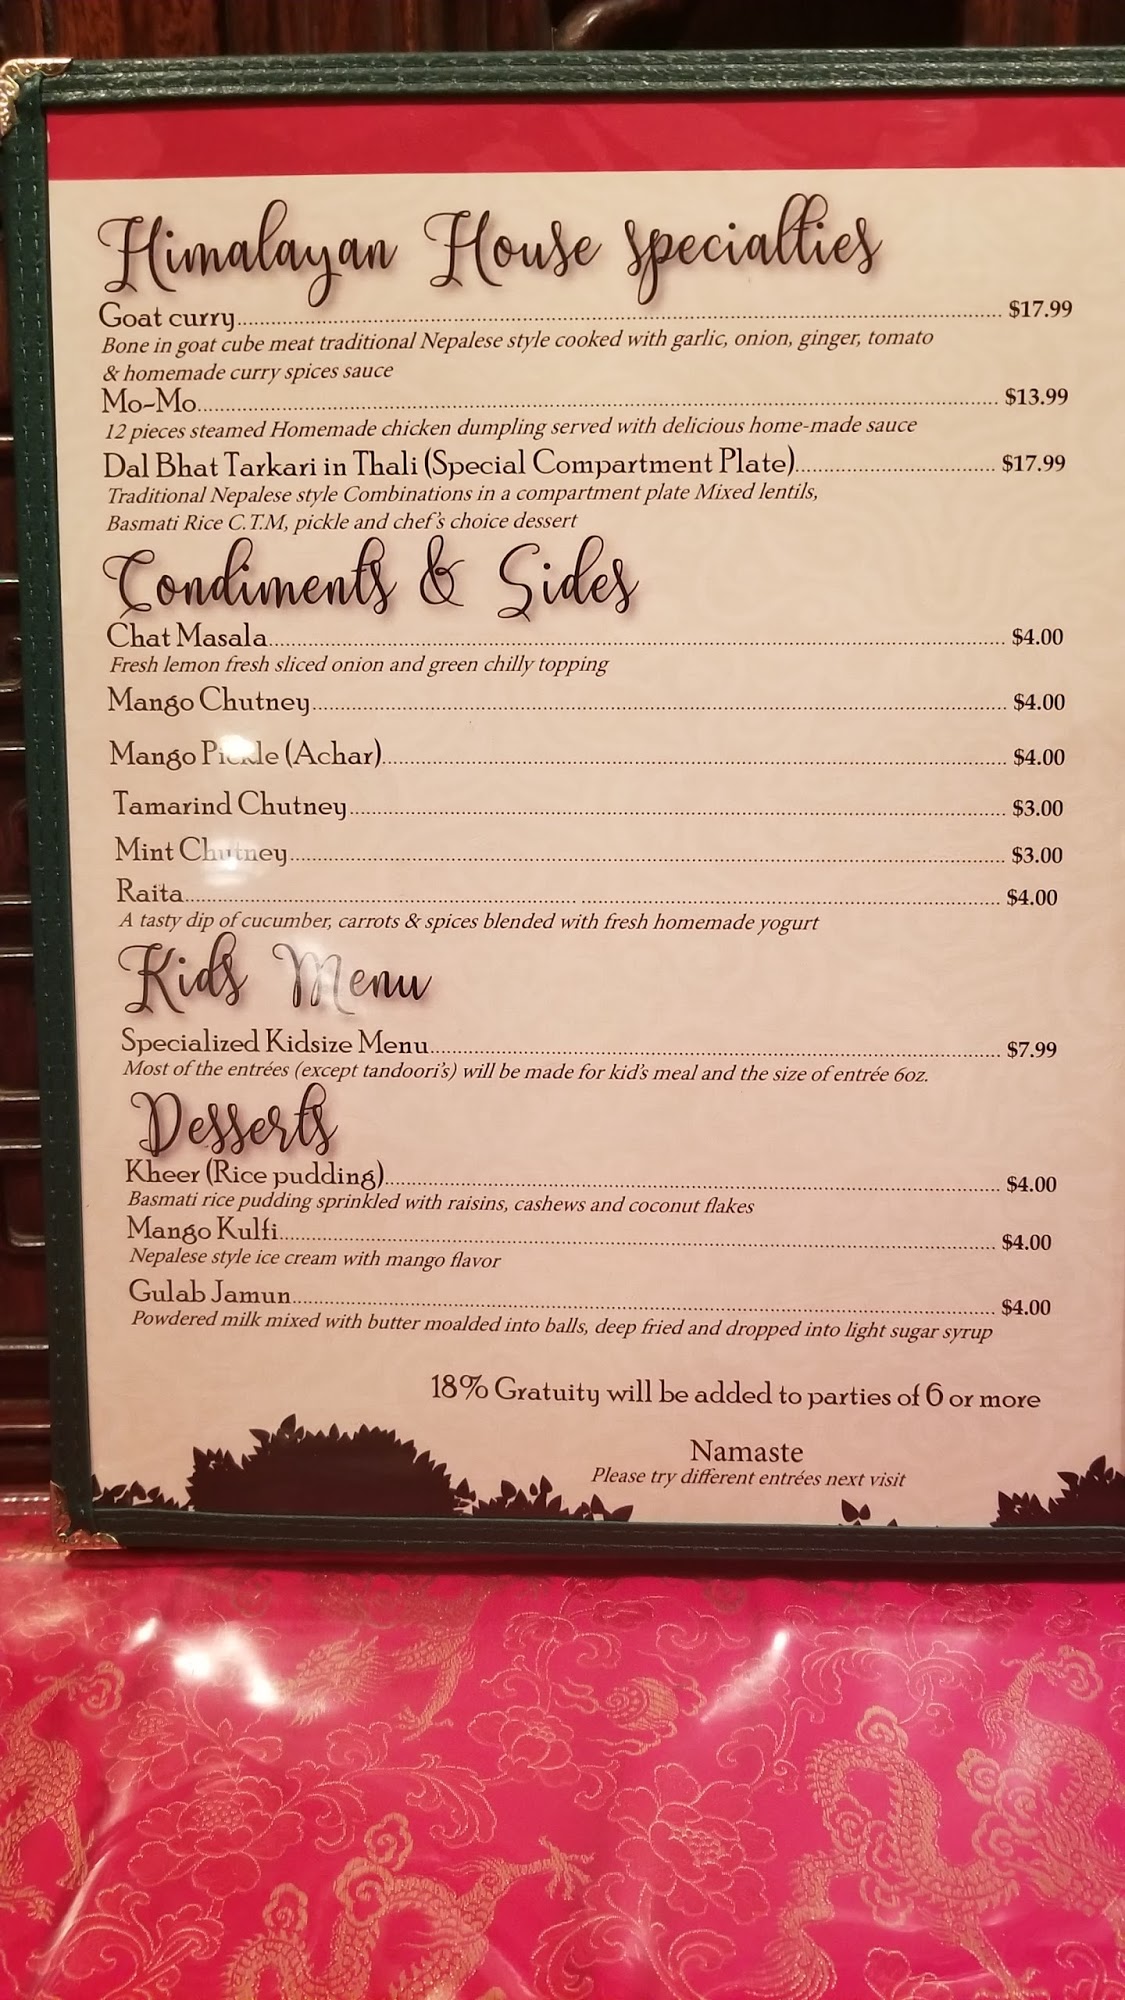 Himalayan House specialties
Goat curry........ $17.99
Bone in goat cube meat traditional Nepalese style cooked with garlic, onion, ginger, tomato
& homemade curry spices sauce
Mo-Mo........ $13.99
12 pieces steamed Homemade chicken dumpling served with delicious home-made sauce
Dal Bhat Tarkari in Thali (Special Compartment Plate)........ $17.99
Traditional Nepalese style Combinations in a compartment plate Mixed lentils,
Basmati Rice C.T.M, pickle and chef's choice dessert
Condiments & Sides
Chat Masala........ $4.00
Fresh lemon fresh sliced onion and green chilly topping
Mango Chutney........ $4.00
Mango Pickle (Achar)........ $4.00
Tamarind Chutney........ $3.00
Mint Chutney........ $3.00
Raita........ $4.00
A tasty dip of cucumber, carrots & spices blended with fresh homemade yogurt
Kids Menu
Specialized Kidsize Menu........ $7.99
Most of the entrées (except tandoori's) will be made for kid's meal and the size of entrée 6oz.
Desserts
Kheer (Rice pudding)........ $4.00
Basmati rice pudding sprinkled with raisins, cashews and coconut flakes
Mango Kulfi........ $4.00
Nepalese style ice cream with mango flavor
Gulab Jamun........ $4.00
Powdered milk mixed with butter moalded into balls, deep fried and dropped into light sugar syrup
18% Gratuity will be added to parties of 6 or more
Namaste
Please try different entrées next visit